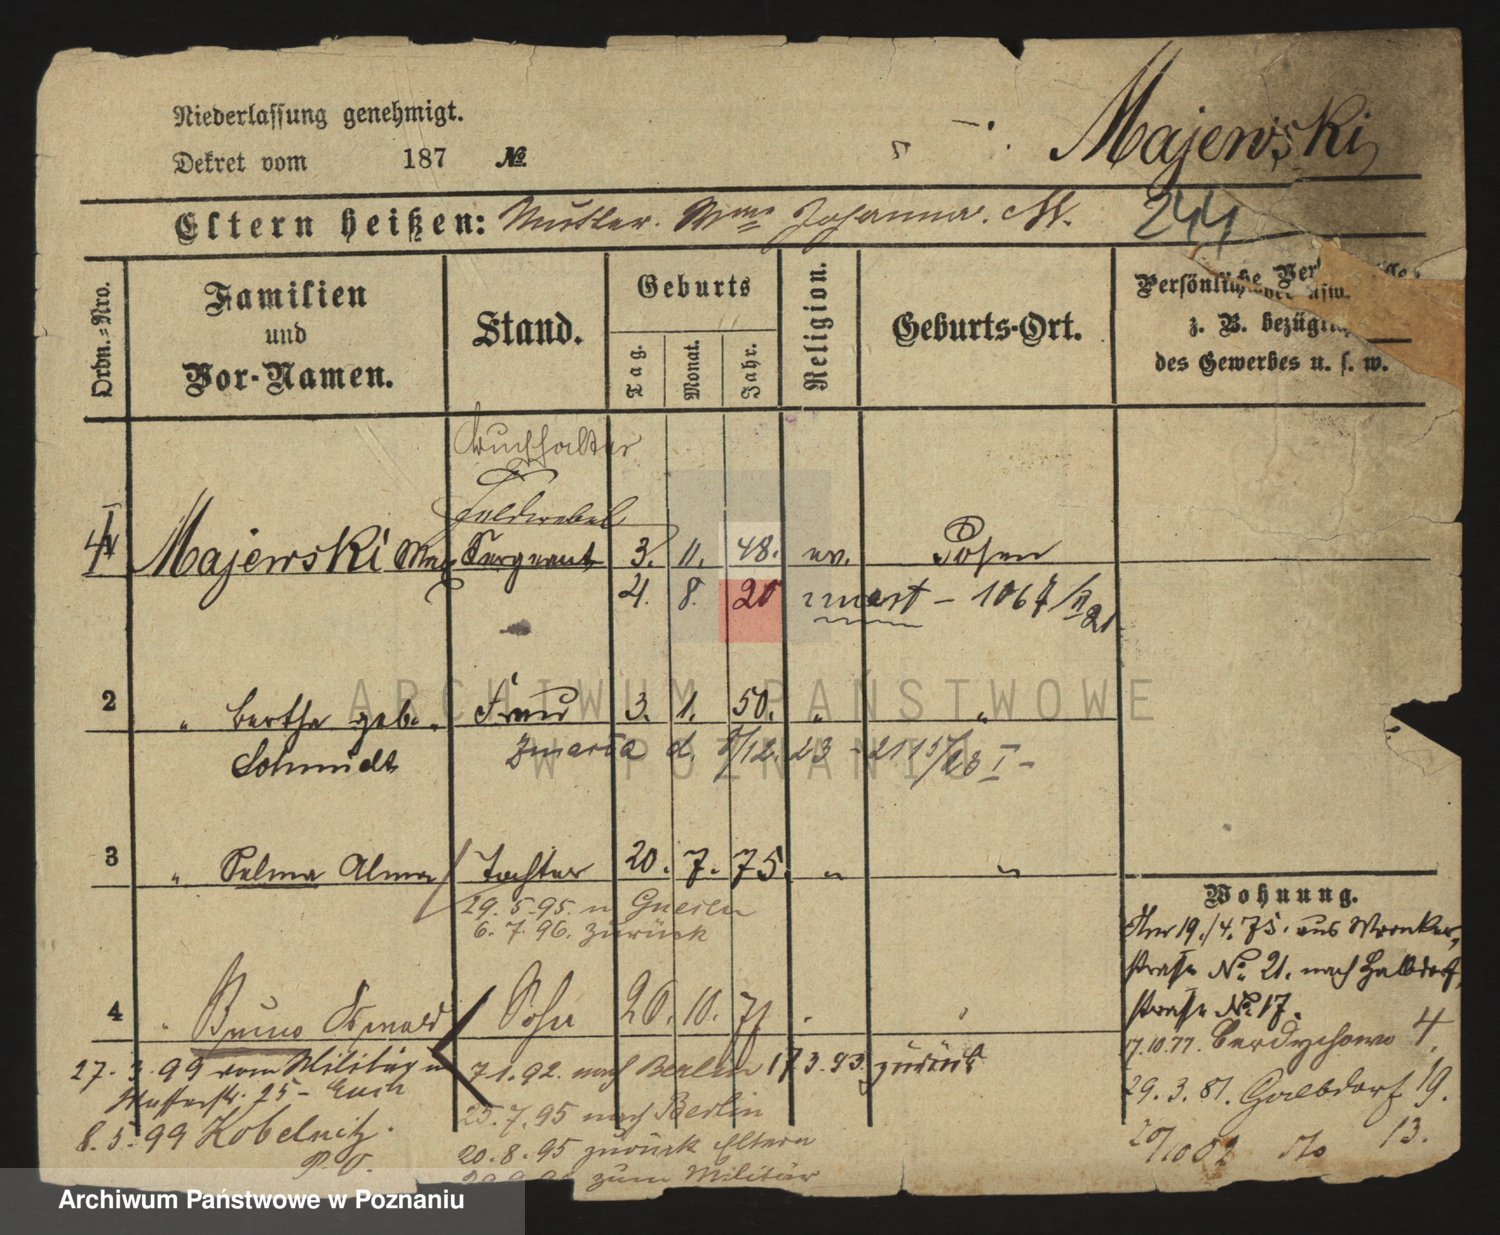 Niederlassung genehmigt.
Dekret vom 187 No.
Majewski
244
Eltern heißen: Mutter. Johanna. M.
Ordn.-Nro.
Familien und Vor-Namen.
Stand.
Geburts
Tag.
Monat.
Jahr.
Religion.
Geburts-Ort.
Persönliche
z. B.
des Gewerbes u. s. w.
Buchhalter
Feldwebel
Majewski Max Sergeant 3. 11. 48. ev. Posen
4. 8. 20 zmarł - 1067/II 21
2 " Bertha geb. Frau 3. 1. 50. " "
Schmidt
zmarła d. 8/12. 23 - 2115/23 I -
3 " Selma Alma Tochter 20. 7. 75. " "
29. 5. 95. n Gnesen
6. 7. 96. zurück
4 " Bruno Oswald Sohn 26. 10. 77 . "
27. 3. 99 vom Militär
7 1. 92. nach Berlin 17 3. 93 zurück
25. 7. 95 nach Berlin
8. 5. 99 Kobelnitz.
P. O.
20. 8. 95 zurück Eltern
zum Militär
Wohnung.
Am 19./4. 75. aus Wronker-
straße No. 21. nach Halbdorf-
straße No. 17.
17. 10. 77. Berdychowo 4.
29. 3. 81. Halbdorf 19.
20/10 02 dto 13.
ARCHIWUM PAŃSTWOWE
W POZNANIU
Archiwum Państwowe w Poznaniu